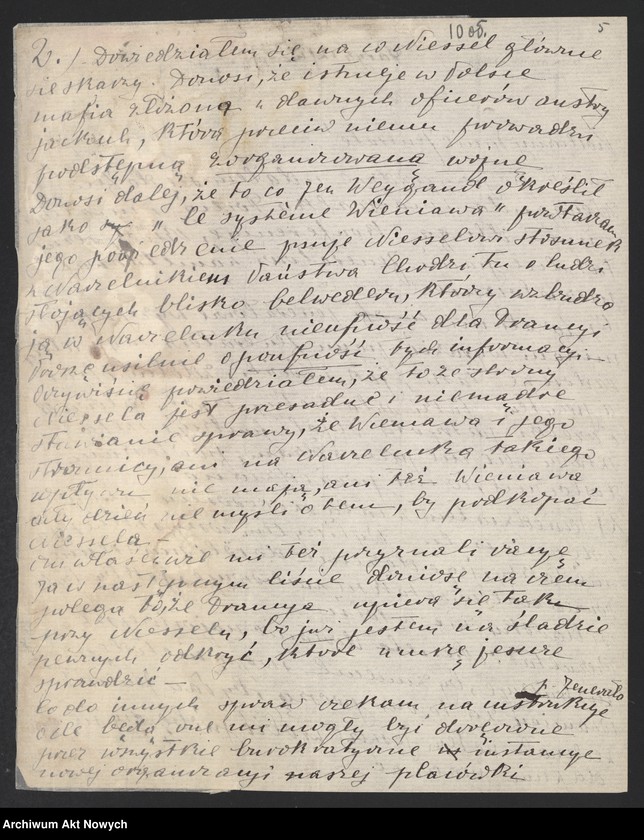 10 об. 5
2.) Dowiedziałem się na co Niessel głównie
się skarży. Donosi, że istnieje w Polsce
mafia złożona z dawnych oficerów austry
jackich, która przeciw niemu prowadzi
podstępną zorganizowaną wojnę
Donosi dalej, że to co jen Weygand określił
jako "le système Wieniawa" powtarzam
jego powiedzenie psuje Niesselowi stosunek
z Naczelnikiem Państwa Chodzi tu o ludzi
stojących blisko belwederu, którzy wzbudza
ją w Naczelniku nieufność dla Francyi
Proszę usilnie o poufność tych informacyi
Oczywiście powiedziałem, że to ze strony
Niessela jest przesadne i niemądre
stawianie sprawy, że Wieniawa i jego
stronnicy, ani na Naczelnika takiego
wpływu nie mają, ani też Wieniawa
cały dzień nie myśli o tem, by podkopać
Niessela —
mi też przyznali racyę
Ja w następnym liście doniosę na czem
polega to, że Francya upiera się tak
przy Niesselu, bo już jestem na śladzie
pewnych odkryć, które muszę jeszcze
sprawdzić —
Co do innych spraw czekam na instrukcye p. Jenerała
o ile będą one mi mogły być doręczone
przez wszystkie biurokratyczne instancye
nowej organizacyi naszej placówki
Archiwum Akt Nowych